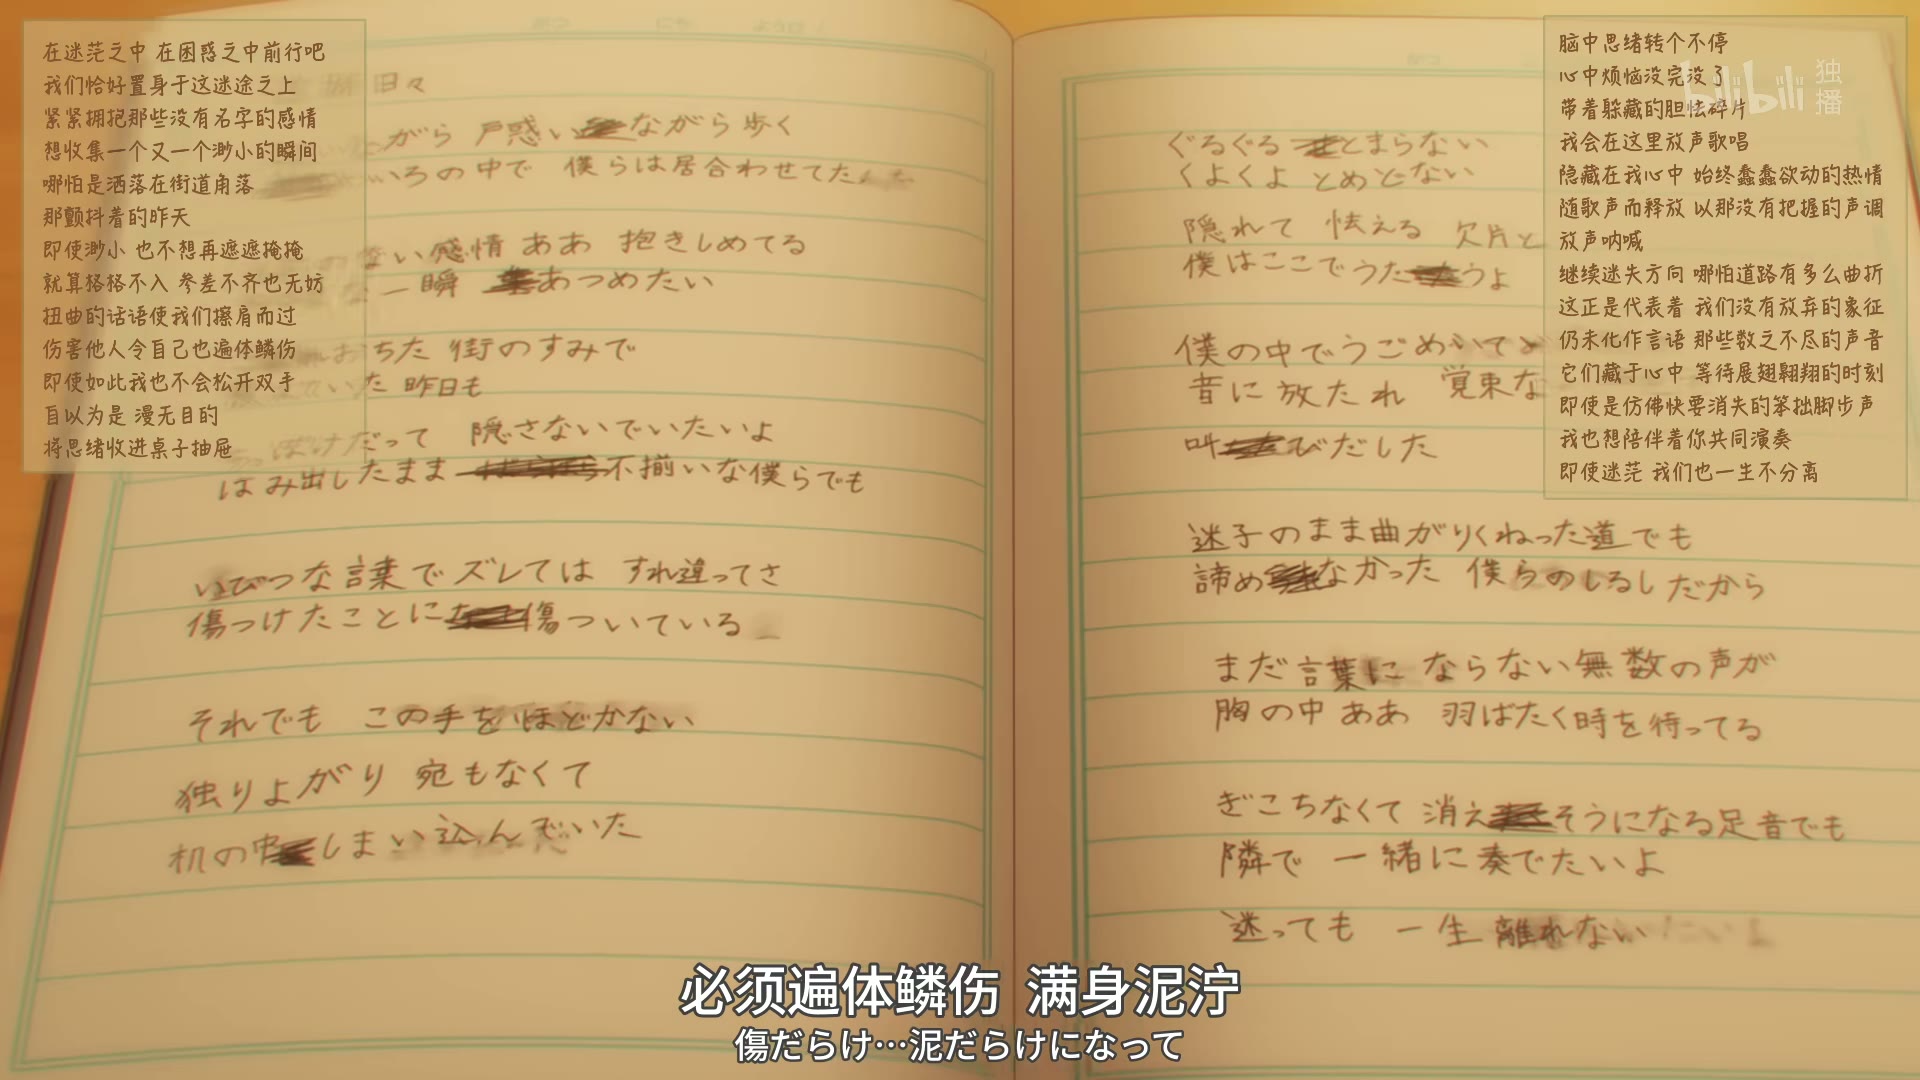 在迷茫之中 在困惑之中前行吧
我们恰好置身于这迷途之上
紧紧拥抱那些没有名字的感情
想收集一个又一个渺小的瞬间
哪怕是洒落在街道角落
那颤抖着的昨天
即使渺小 也不想再遮遮掩掩
就算格格不入 参差不齐也无妨
扭曲的话语使我们擦肩而过
伤害他人令自己也遍体鳞伤
即使如此我也不会松开双手
自以为是 漫无目的
将思绪收进桌子抽屉
日々
がら 戸惑いながら歩く
いろの中で 僕らは居合わせてた
ない感情 ああ 抱きしめてる
一瞬 あつめたい
おちた 街のすみで
いた 昨日も
ぼけだって 隠さないでいたいよ
はみ出したまま 不揃いな僕らでも
いびつな言葉でズレては すれ違ってさ
傷つけたことに傷ついている
それでも この手をほどかない
独りよがり 宛もなくて
机の中しまい込んでいた
脑中思绪转个不停
心中烦恼没完没了
带着躲藏的胆怯碎片
我会在这里放声歌唱
隐藏在我心中 始终蠢蠢欲动的热情
随歌声而释放 以那没有把握的声调
放声呐喊
继续迷失方向 哪怕道路有多么曲折
这正是代表着 我们没有放弃的象征
仍未化作言语 那些数之不尽的声音
它们藏于心中 等待展翅翱翔的时刻
即使是仿佛快要消失的笨拙脚步声
我也想陪伴着你共同演奏
即使迷茫 我们也一生不分离
bilibili 独播
ぐるぐる とまらない
くよくよ とめどない
隠れて 怯える 欠片と
僕はここでうたうよ
僕の中でうごめいて
音に放たれ 覚束な
叫びだした
迷子のまま曲がりくねった道でも
諦めなかった 僕らのしるしだから
まだ言葉に ならない無数の声が
胸の中 ああ 羽ばたく時を待ってる
ぎこちなくて 消えそうになる足音でも
隣で 一緒に奏でたいよ
迷っても 一生 離れない
必须遍体鳞伤 满身泥泞
傷だらけ…泥だらけになって